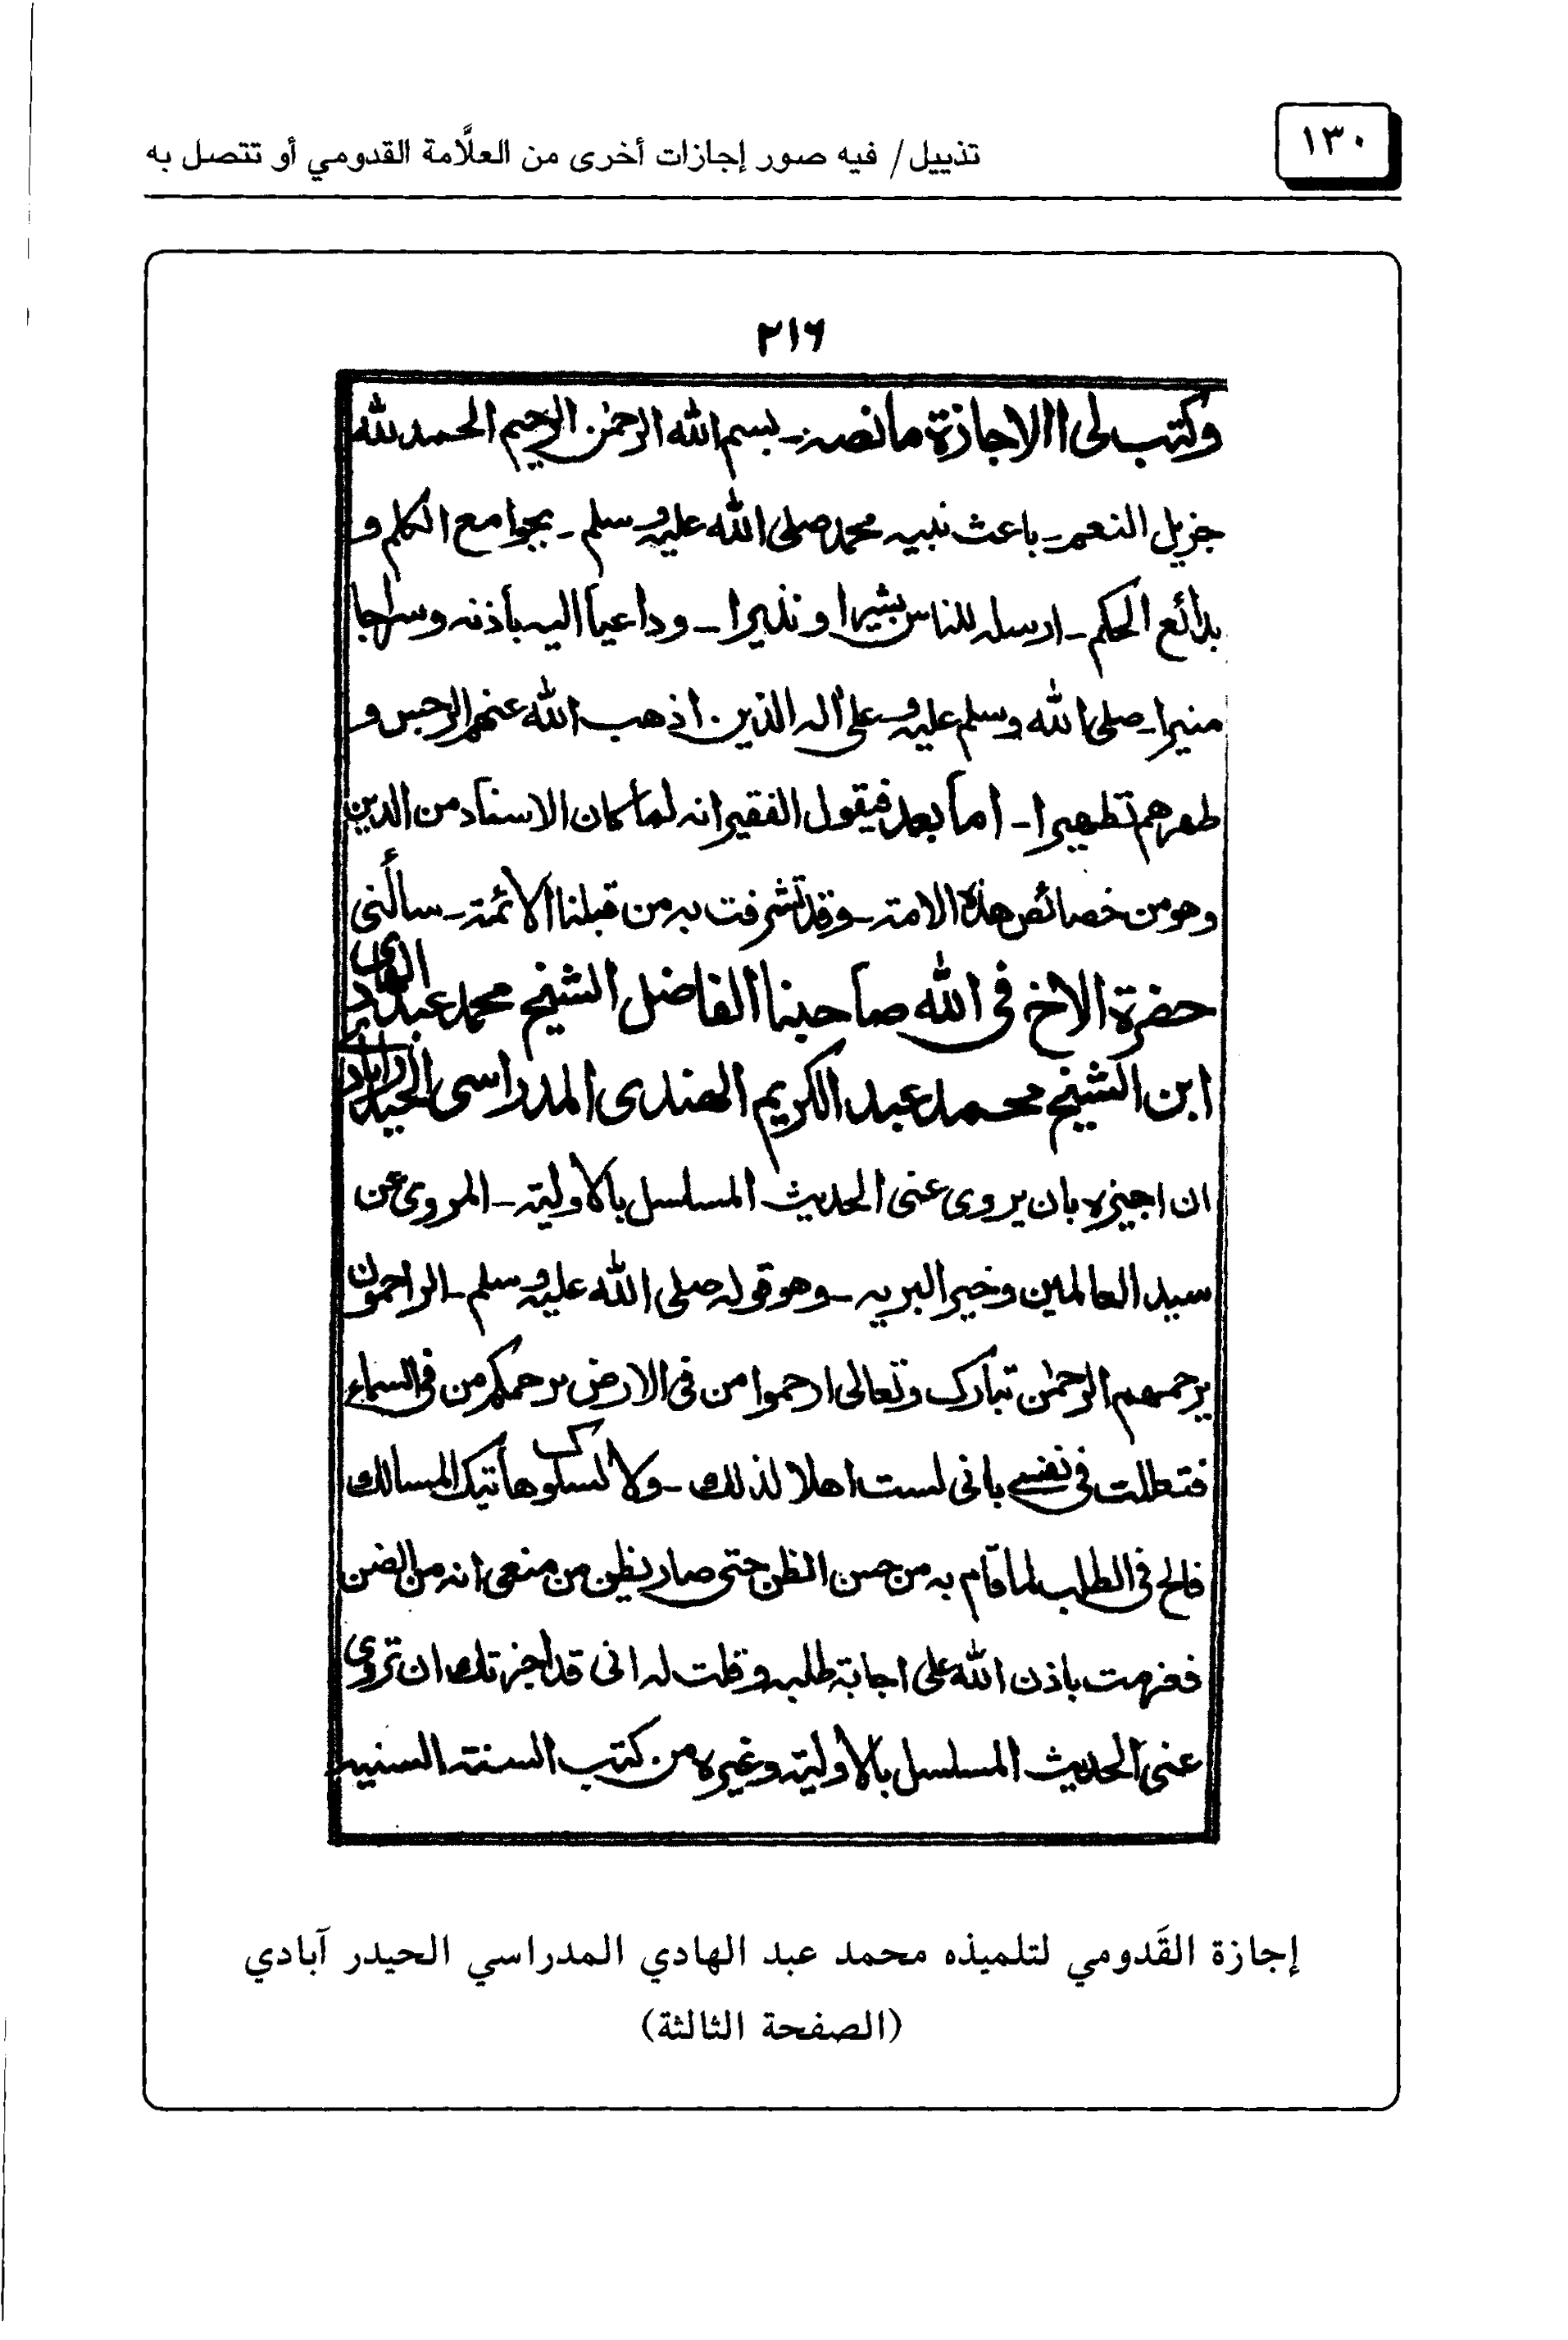 ١٣٠
تذييل/ فيه صور إجازات أخرى من العلَّامة القدومي أو تتصل به
٢١٦
وكتب لى الاجازة ما نصہ۔ بسم الله الرحمٰن الرحيم الحمد لله
جزيل النعم۔ باعث نبيہ محمد صلى الله عليہ وسلم۔ بجوامع الكلم و
بدائع الحكم۔ ارسلہ للناس بشيرا و نذيرا۔ وداعيا اليہ بأذنہ وسراجا
منيرا۔ صلى الله وسلم عليہ وعلى اٰلہ الذين اذهب الله عنهم الرجس و
طهرهم تطهيرا۔ اما بعد فيقول الفقير انہ لما كان الاسناد من الدين
وهو من خصائص هذہ الامتہ۔ وقد تشرفت بہ من قبلنا الائمتہ۔ سألنى
حضرة الاخ فى الله صاحبنا الفاضل الشيخ محمد عبد الهادى
ابن الشيخ محمد عبد الكريم الهندى المدراسى الحيدرابادى
ان اجيزہ بان يروى عنى الحديث المسلسل بالاوليتہ۔ المروى عن
سيد العالمين وخير البريہ۔ وهو قولہ صلى الله عليہ وسلم۔ الراحمون
يرحمهم الرحمٰن تبارك وتعالى ارحموا من فى الارض يرحمكم من فى السماء
فتعللت فى نفسى بانى لست اهلا لذلك۔ ولا لسلوك هاتيك المسالك
فالح فى الطلب لما قام بہ من حسن الظن حتى صار يظن من منعى انہ من الضن
فعزمت باذن الله على اجابتہ طلبہ وقلت لہ انى قد اجزتك ان تروى
عنى الحديث المسلسل بالاوليتہ وغيرہ من كتب السنتہ السنيہ
إجازة القَدومي لتلميذه محمد عبد الهادي المدراسي الحيدر آبادي
(الصفحة الثالثة)